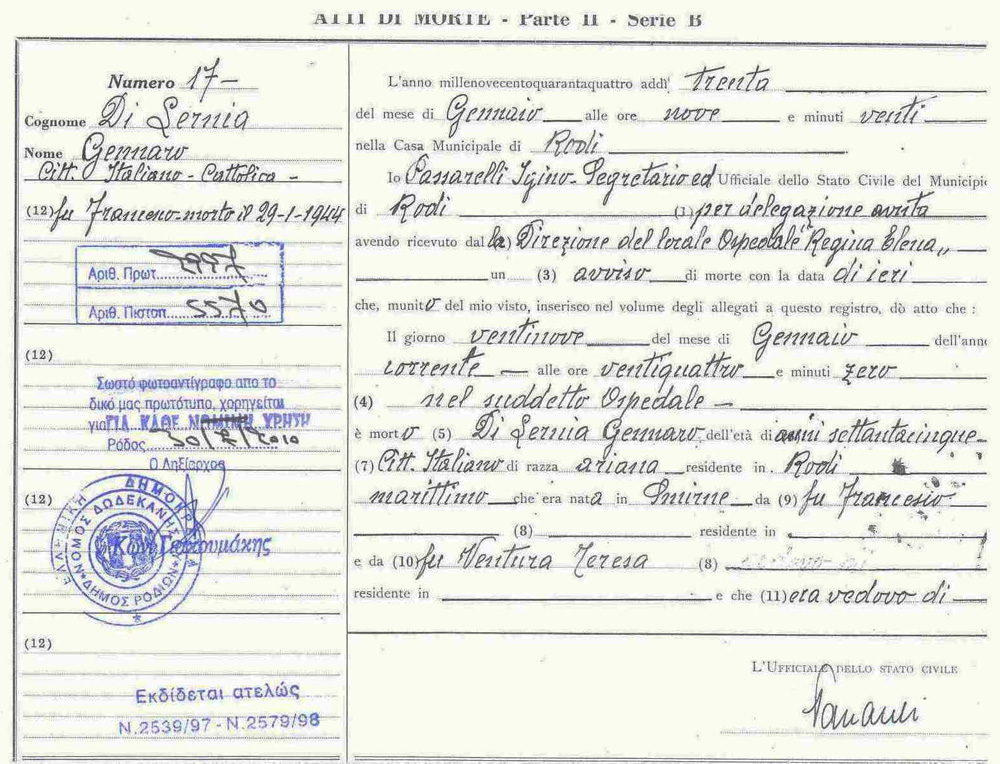 ATTI DI MORTE - Parte II - Serie B
Numero 17 -
Cognome Di Lernia
Nome Gennaro
Citt. Italiano - Cattolica -
(12) fu Francesco - morto il 29-1-1944
Αριθ. Πρωτ. 2997
Αριθ. Πιστοπ. 5570
(12)
Σωστό φωτοαντίγραφο απο το
δικό μας πρωτότυπο, χορηγείται
για ΓΙΑ ΚΑΘΕ ΝΟΜΙΜΗ ΧΡΗΣΗ
Ρόδος 30/7/2010
Ο Ληξίαρχος
(12)
ΕΛΛΗΝΙΚΗ ΔΗΜΟΚΡΑΤΙΑ
ΝΟΜΟΣ ΔΩΔΕΚΑΝΗΣΟΥ
ΔΗΜΟΣ ΡΟΔΙΩΝ
(12)
Εκδίδεται ατελώς
Ν.2539/97 - Ν.2579/98
L'anno millenovecentoquarantaquattro addì trenta
del mese di Gennaio alle ore nove e minuti venti
nella Casa Municipale di Rodi
Io Passarelli Igino - Segretario ed Ufficiale dello Stato Civile del Municipio
di Rodi (1) per delegazione avuta
avendo ricevuto dalla (2) Direzione del locale Ospedale "Regina Elena"
un (3) avviso di morte con la data di ieri
che, munito del mio visto, inserisco nel volume degli allegati a questo registro, dò atto che :
Il giorno ventinove del mese di Gennaio dell'anno
corrente — alle ore ventiquattro e minuti zero
(4) nel suddetto Ospedale —
è morto (5) Di Lernia Gennaro, dell'età di anni settantacinque -
(7) Citt. Italiano di razza ariana residente in Rodi
marittimo che era nata in Smirne da (9) fu Francesco
(8) residente in
e da (10) fu Ventura Teresa (8)
residente in e che (11) era vedovo di
L'UFFICIALE DELLO STATO CIVILE